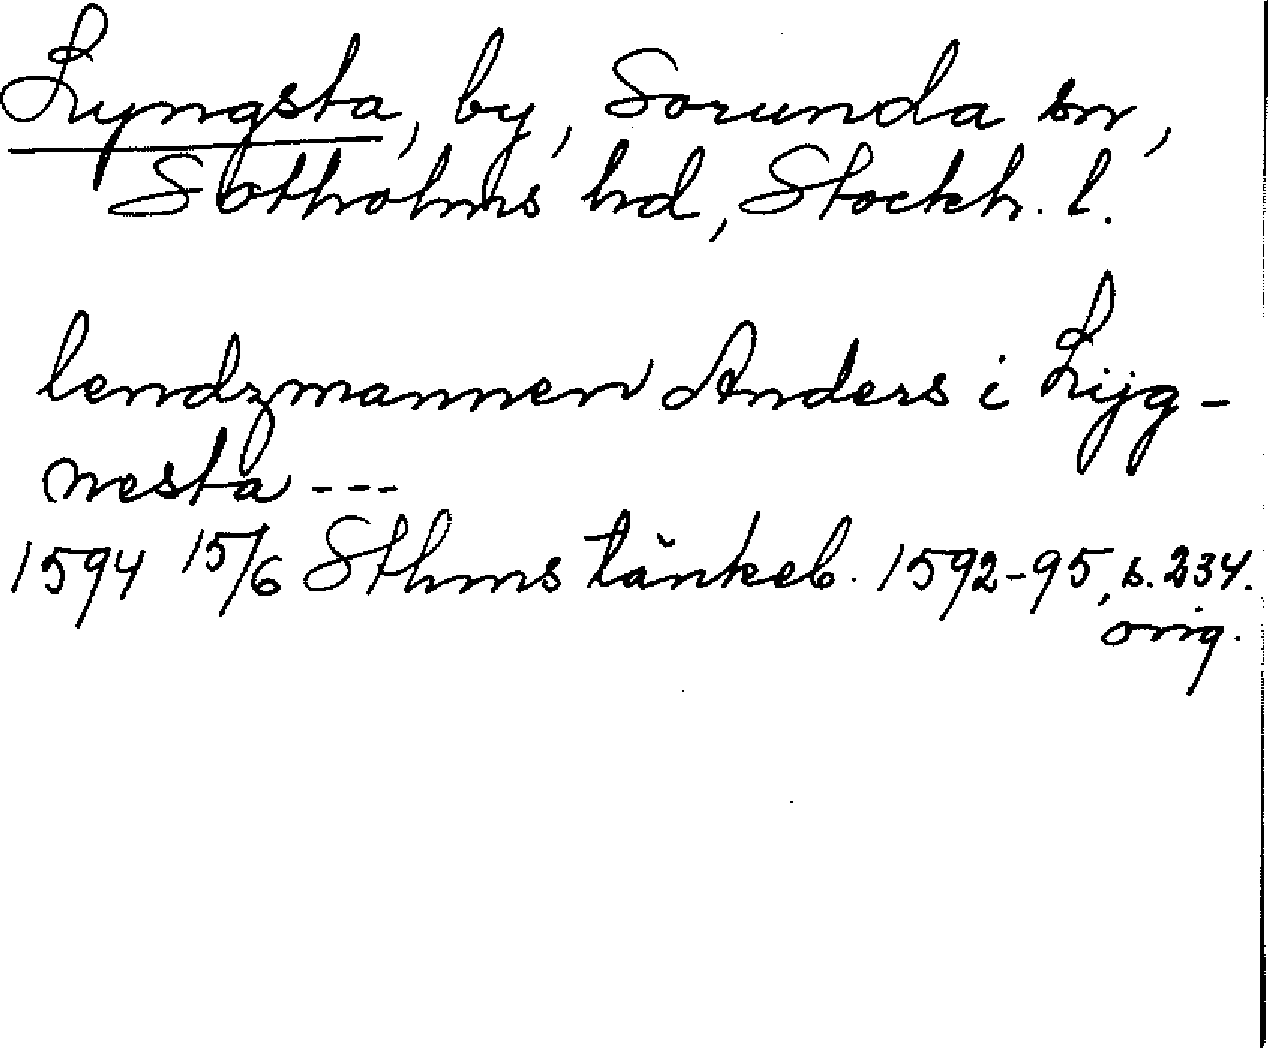 Lyngsta, by, Sorunda sn,
Sotholms hd, Stockh. l.
lendzmannen Anders i Lijg-
nesta ---
1594 15/6 Sthms tänkeb. 1592-95, s. 234.
orig.